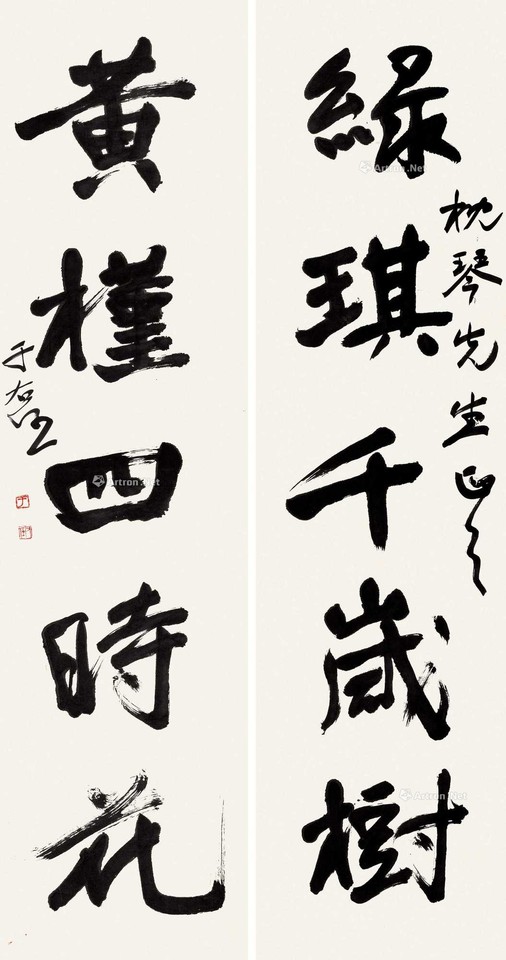 綠琪千歲樹
枕琴先生正之
黃槿四時花
于右任
Artron.Net
Artron.Net
Artron.Net